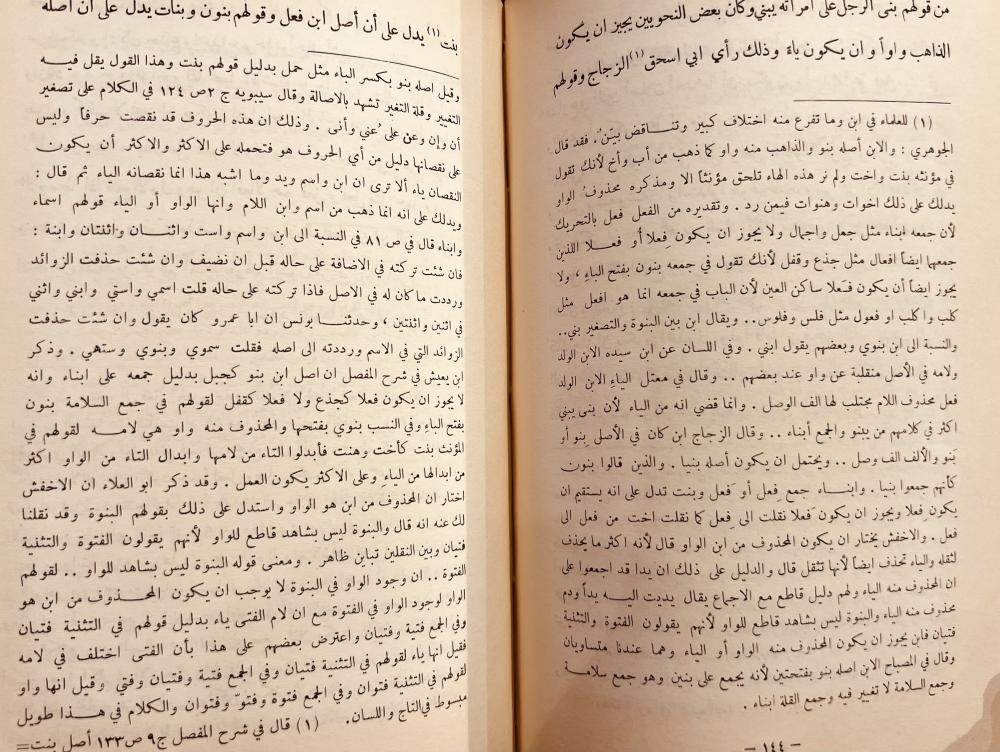 من قولهم بنى الرجل على امرأته يبني وكان بعض النحويين يجيز ان يكون
الذاهب واواً وان يكون ياءً وذلك رأي ابي اسحق (١) الزجاج وقولهم
(١) للعلماء في ابن وما تفرع منه اختلاف كبير وتناقض بيّن. فقد قال
الجوهري : والابن أصله بنو والذاهب منه واو كما ذهب من أب وأخ لأنك تقول
في مؤنثه بنت واخت ولم نر هذه الهاء تلحق مؤنثاً الا ومذكره محذوف الواو
يدلك على ذلك اخوات وهنوات فيمن رد . وتقديره من الفعل فعل بالتحريك
لأن جمعه ابناء مثل جمل واجمال ولا يجوز ان يكون فعلا أو فعلا اللذين
جمعهما ايضاً افعال مثل جذع وقفل لأنك تقول في جمعه بنون بفتح الباء ، ولا
يجوز ايضاً أن يكون فعلا ساكن العين لأن الباب في جمعه انما هو افعل مثل
كلب واكلب او فعول مثل فلس وفلوس .. ويقال ابن بين البنوة والتصغير بني..
والنسبة الى ابن بنوي وبعضهم يقول ابني . وفي اللسان عن ابن سيده الابن الولد
ولامه في الأصل منقلبة عن واو عند بعضهم .. وقال في معتل الياء الابن الولد
فعل محذوف اللام مجتلب لها الف الوصل . وانما قضي انه من الياء لأن بنى يبني
اكثر في كلامهم من يبنو والجمع أبناء .. وقال الزجاج ابن كان في الأصل بنو أو
بَنو والألف الف وصل .. ويحتمل ان يكون أصله بنيا . والذين قالوا بنون
كأنهم جمعوا بنيا . وابناء جمع فعل أو فَعل وبنت تدل على انه يستقيم ان
يكون فِعلا ويجوز ان يكون فَعلا نقلت الى فعل كما نقلت اخت من فعل الى
فعل . والاخفش يختار ان يكون المحذوف من ابن الواو قال لأنه اكثر ما يحذف
لثقله والياء تحذف ايضاً لأنها تثقل قال والدليل على ذلك ان يدا قد اجمعوا على
ان المحذوف منه الياء ولهم دليل قاطع مع الاجماع يقال يديت اليه يداً ودم
محذوف منه الياء والبنوة ليس بشاهد قاطع للواو لأنهم يقولون الفتوة والتثنية
فتيان فابن يجوز ان يكون المحذوف منه الواو أو الياء وهما عندنا متساويان
وقال في المصباح الابن اصله بنو بفتحتين لأنه يجمع على بنين وهو جمع سلامة
وجمع السلامة لا تغيير فيه وجمع القلة ابناء .
— ١٤٤ —
بنت (١) يدل على أن أصل ابن فعل وقولهم بنون وبنات يدل على أن أصله
وقيل اصله بنو بكسر الباء مثل حمل بدليل قولهم بنت وهذا القول يقل فيه
التغيير وقلة التغير تشهد بالاصالة وقال سيبويه ج ٢ ص ١٢٤ في الكلام على تصغير
أن وإن وعن على عُني وأنى . وذلك ان هذه الحروف قد نقصت حرفاً وليس
على نقصانها دليل من أي الحروف هو فتحمله على الاكثر والاكثر أن يكون
النقصان ياء ألا ترى ان ابن واسم ويد وما اشبه هذا انما نقصانه الياء ثم قال :
ويدلك على انه انما ذهب من اسم وابن اللام وانها الواو أو الياء قولهم اسماء
وابناء قال في ص ٨١ في النسبة الى ابن واسم واست واثنان واثنتان وابنة :
فان شئت تركته في الاضافة على حاله قبل ان نضيف وان شئت حذفت الزوائد
ورددت ما كان له في الاصل فاذا تركته على حاله قلت اسمي واستي وابني واثني
في اثنين واثنتين ، وحدثنا يونس ان ابا عمرو كان يقول وان شئت حذفت
الزوائد التي في الاسم ورددته الى اصله فقلت سموي وبنوي وستهي . وذكر
ابن يعيش في شرح المفصل ان اصل ابن بنو كجبل بدليل جمعه على ابناء وانه
لا يجوز ان يكون فعلا كجذع ولا فعلا كقفل لقولهم في جمع السلامة بنون
بفتح الباء وفي النسب بنوي بفتحها والمحذوف منه واو هي لامه لقولهم في
المؤنث بنت كأخت وهنت فأبدلوا التاء من لامها وابدال التاء من الواو اكثر
من ابدالها من الياء وعلى الاكثر يكون العمل . وقد ذكر ابو العلاء ان الاخفش
اختار ان المحذوف من ابن هو الواو واستدل على ذلك بقولهم البنوة وقد نقلنا
لك عنه انه قال والبنوة ليس بشاهد قاطع للواو لأنهم يقولون الفتوة والتثنية
فتيان وبين النقلين تباين ظاهر . ومعنى قوله البنوة ليس بشاهد للواو .. لقولهم
الفتوة .. ان وجود الواو في البنوة لا يوجب ان يكون المحذوف من ابن هو
الواو لوجود الواو في الفتوة مع ان لام الفتى ياء بدليل قولهم في التثنية فتيان
وفي الجمع فتية وفتيان واعترض بعضهم على هذا بأن الفتى اختلف في لامه
فقيل انها ياء لقولهم في التثنية فتيان وفي الجمع فتية وفتيان وفتي وقيل انها واو
لقولهم في التثنية فتوان وفي الجمع فتوة وفتو وفتوان والكلام في هذا طويل
مبسوط في التاج واللسان. (١) قال في شرح المفصل ج٩ ص١٣٣ أصل بنت=